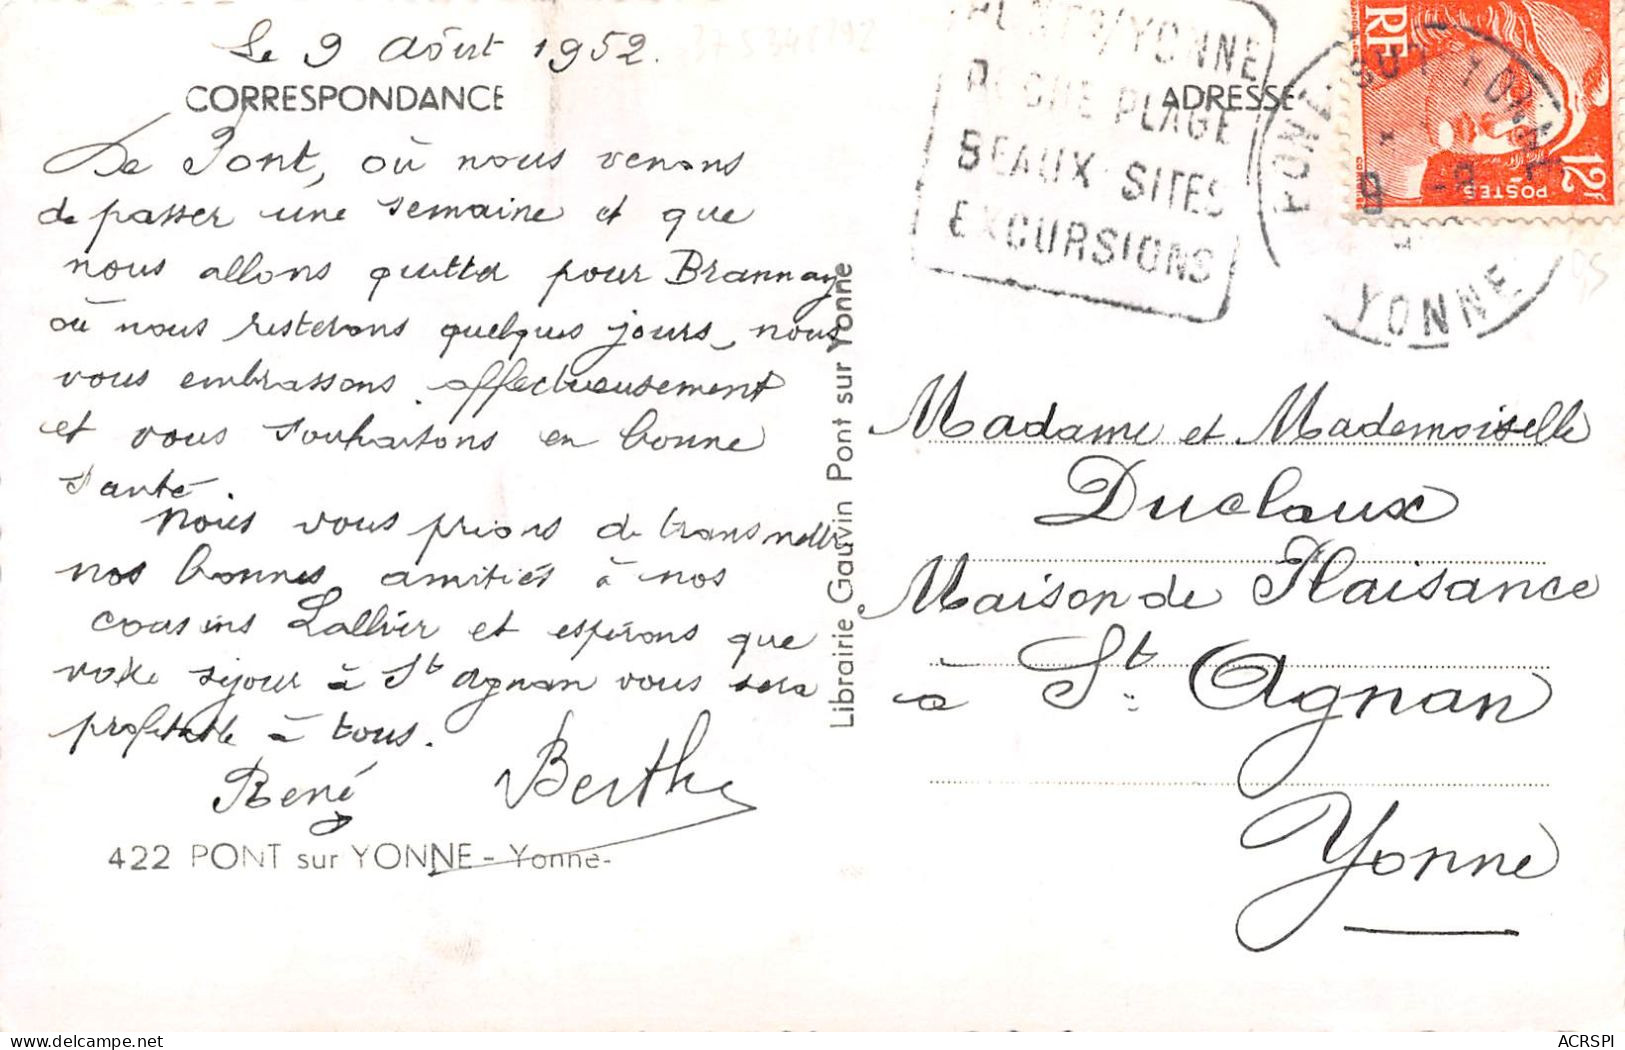 Le 9 Août 1952.
CORRESPONDANCE
De Pont, où nous venons
de passer une semaine et que
nous allons quitter pour Brannay
où nous resterons quelques jours, nous
vous embrassons affectueusement
et vous souhaitons en bonne
santé.
Nous vous prions de transmettre
nos bonnes amitiés à nos
cousins Lallier et espérons que
votre séjour à St Agnan vous sera
profitable à tous.
René Berthe
422 PONT sur YONNE - Yonne-
Librairie Gauvin Pont sur Yonne
PONT S/YONNE
PECHE PLAGE
BEAUX SITES
EXCURSIONS
ADRESSE
PONT SUR YONNE
YONNE
RF
POSTES
12F
Madame et Mademoiselle
Duclaux
Maison de Plaisance
à St Agnan
Yonne
ACRSPI